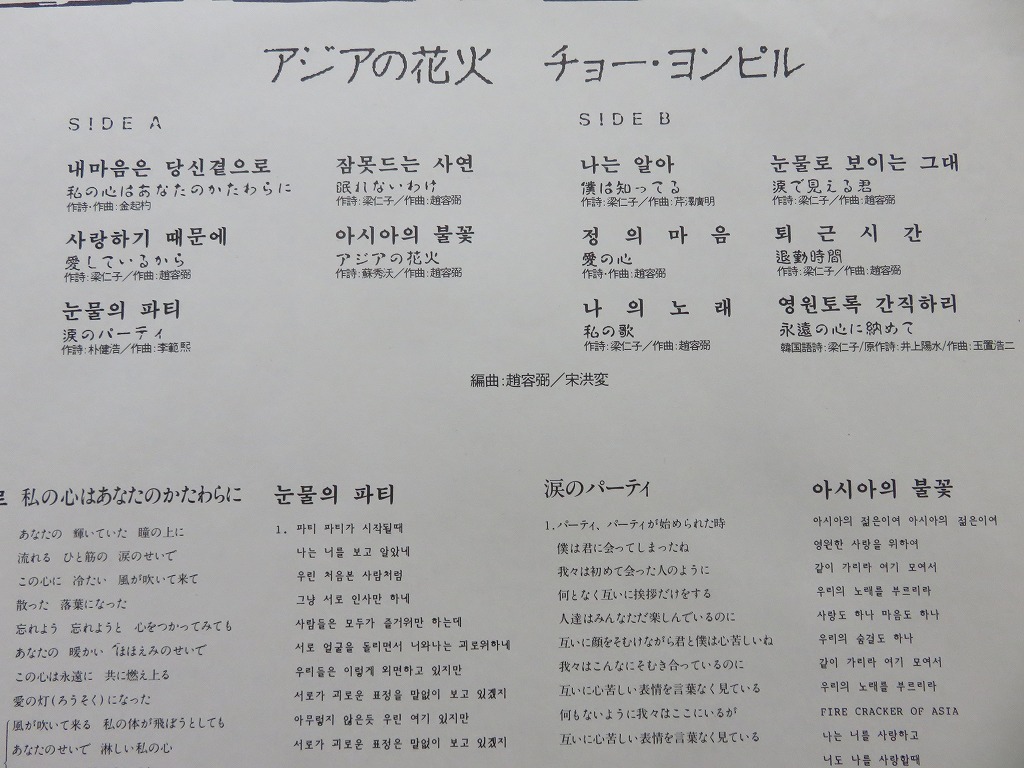 アジアの花火 チョー・ヨンピル
SIDE A
내마음은 당신곁으로
私の心はあなたのかたわらに
作詩・作曲:金起杓
사랑하기 때문에
愛しているから
作詩:梁仁子/作曲:趙容弼
눈물의 파티
涙のパーティ
作詩:朴健浩/作曲:李範熙
잠못드는 사연
眠れないわけ
作詩:梁仁子/作曲:趙容弼
아시아의 불꽃
アジアの花火
作詩:蘇秀沃/作曲:趙容弼
SIDE B
나는 알아
僕は知ってる
作詩:梁仁子/作曲:芹澤廣明
정의 마음
愛の心
作詩・作曲:趙容弼
나의 노래
私の歌
作詩:梁仁子/作曲:趙容弼
눈물로 보이는 그대
涙で見える君
作詩:梁仁子/作曲:趙容弼
퇴근시간
退勤時間
作詩:梁仁子/作曲:趙容弼
영원토록 간직하리
永遠の心に納めて
韓国語詩:梁仁子/原作詩:井上陽水/作曲:玉置浩二
編曲:趙容弼/宋洪変
로 私の心はあなたのかたわらに
あなたの 輝いていた 瞳の上に
流れる ひと筋の 涙のせいで
この心に 冷たい 風が吹いて来て
散った 落葉になった
忘れよう 忘れようと 心をつかってみても
あなたの 暖かい ほほえみのせいで
この心は永遠に 共に燃え上る
愛の灯(ろうそく)になった
風が吹いて来る 私の体が飛ぼうとしても
あなたのせいで 淋しい私の心
눈물의 파티
1. 파티 파티가 시작될때
나는 너를 보고 알았네
우린 처음본 사람처럼
그냥 서로 인사만 하네
사람들은 모두가 즐거위만 하는데
서로 얼굴을 돌리면서 너와나는 괴로위하네
우리들은 이렇게 외면하고 있지만
서로가 괴로운 표정을 말없이 보고 있겠지
아무렇지 않은듯 우린 여기 있지만
서로가 괴로운 표정은 말없이 보고 있겠지
涙のパーティ
1.パーティ、パーティが始められた時
僕は君に会ってしまったね
我々は初めて会った人のように
何となく互いに挨拶だけをする
人達はみんなただ楽しんでいるのに
互いに顔をそむけながら君と僕は心苦しいね
我々はこんなにそむき合っているのに
互いに心苦しい表情を言葉なく見ている
何もないように我々はここにいるが
互いに心苦しい表情を言葉なく見ている
아시아의 불꽃
아시아의 젊은이여 아시아의 젊은이여
영원한 사랑을 위하여
같이 가리라 여기 모여서
우리의 노래를 부르리라
사랑도 하나 마음도 하나
우리의 숨결도 하나
같이 가리라 여기 모여서
우리의 노래를 부르리라
FIRE CRACKER OF ASIA
나는 너를 사랑하고
너도 나를 사랑할때